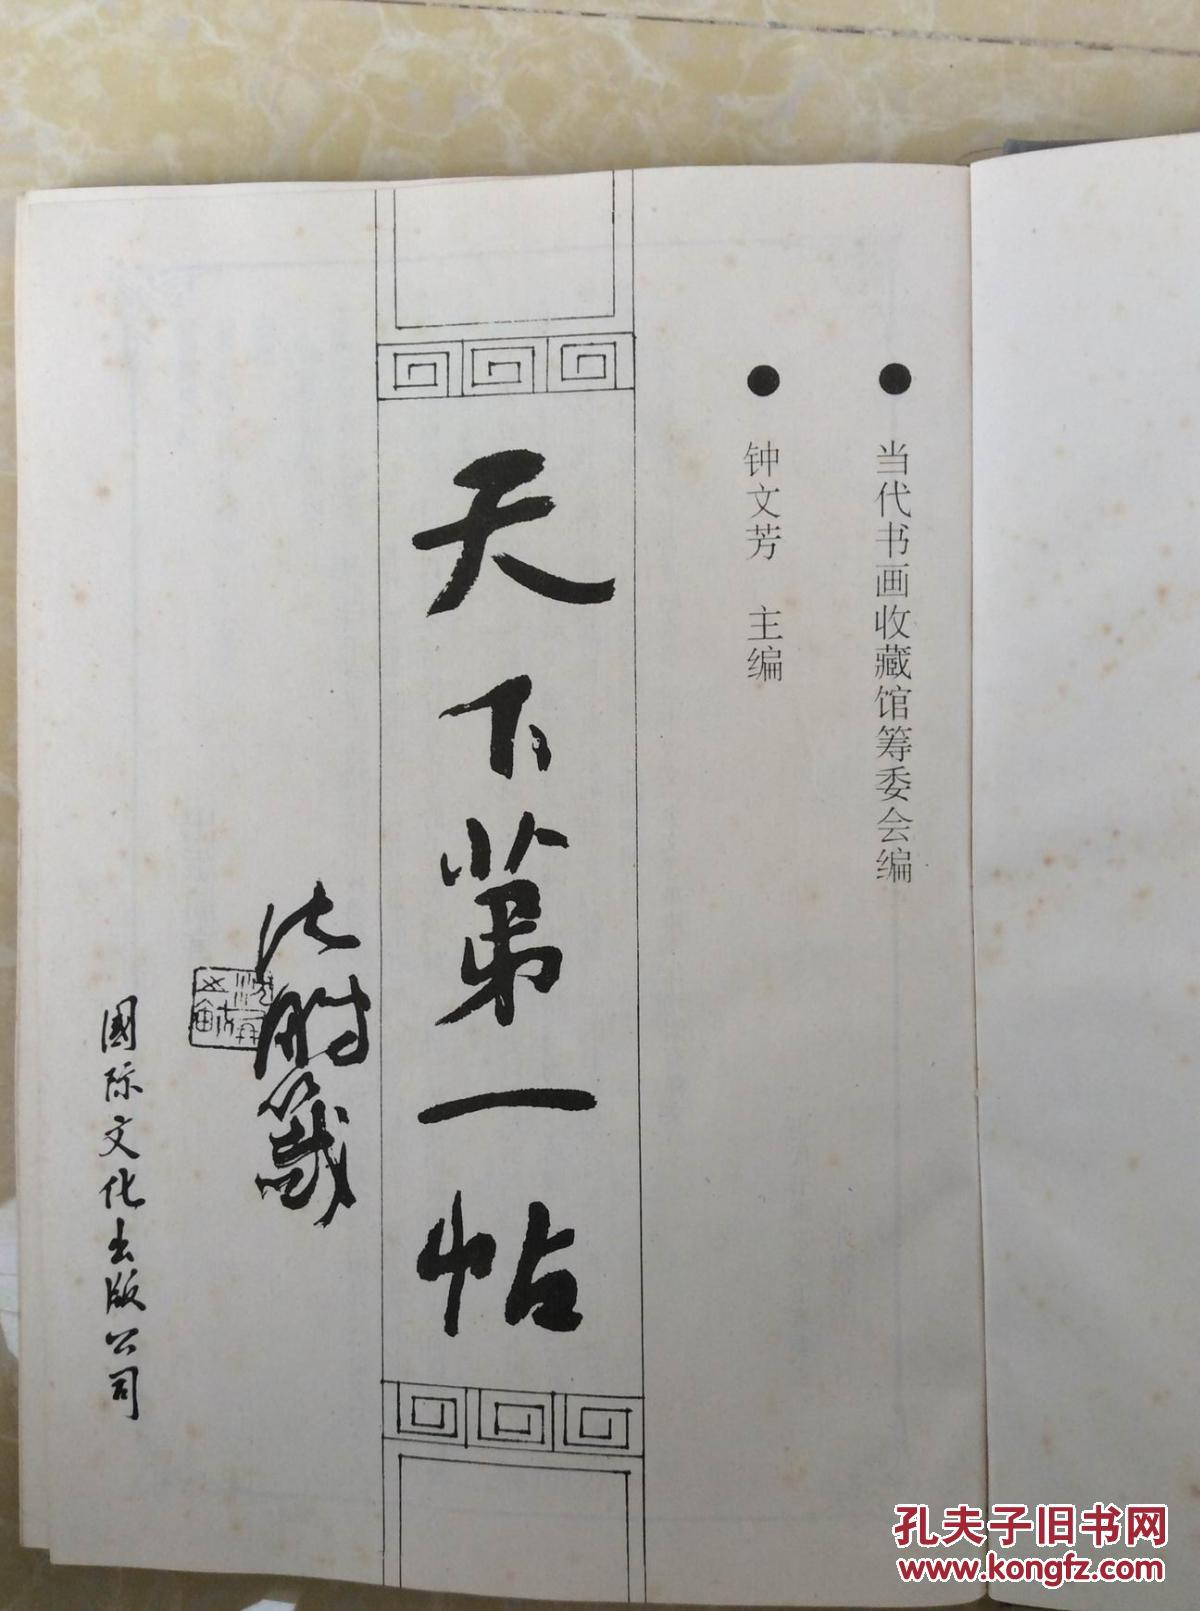 当代书画收藏馆筹委会编
钟文芳 主编
天下第一帖
沈鹏签
国际文化出版公司
孔夫子旧书网
www.kongfz.com